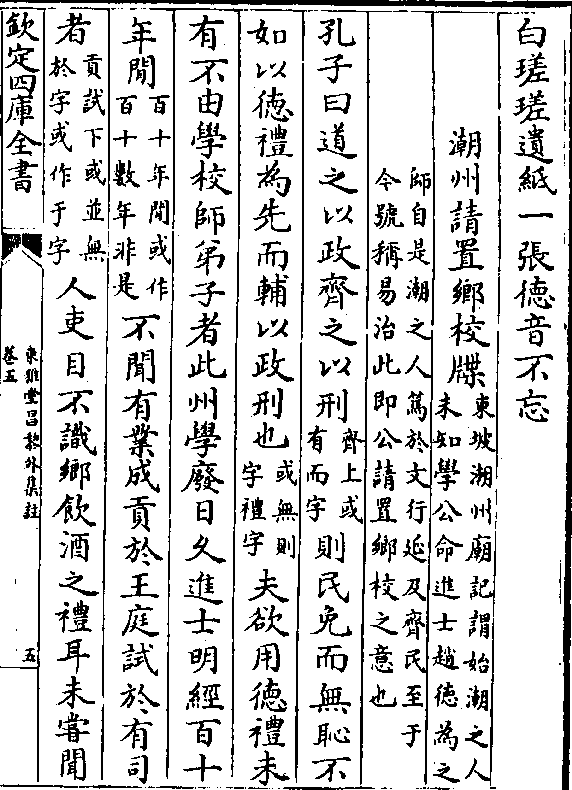 白瑳瑳遺紙一張德音不忘
潮州請置鄉校牒
東坡潮州廟記謂始潮之人
未知學公命進士趙德為之
師自是潮之人篤於文行延及齊民至于
今號稱易治此即公請置鄉校之意也
孔子曰道之以政齊之以刑
齊上或
有而字
則民免而無恥不
如以德禮為先而輔以政刑也
或無則
字禮字
夫欲用德禮未
有不由學校師弟子者此州學廢日久進士明經百十
年間
百十年間或作
百十數年非是
不聞有業成貢於王庭試於有司
者
貢試下或並無
於字或作于字
人吏目不識鄉飲酒之禮耳未嘗聞
欽定四庫全書
東雅堂昌黎外集註
卷五
五